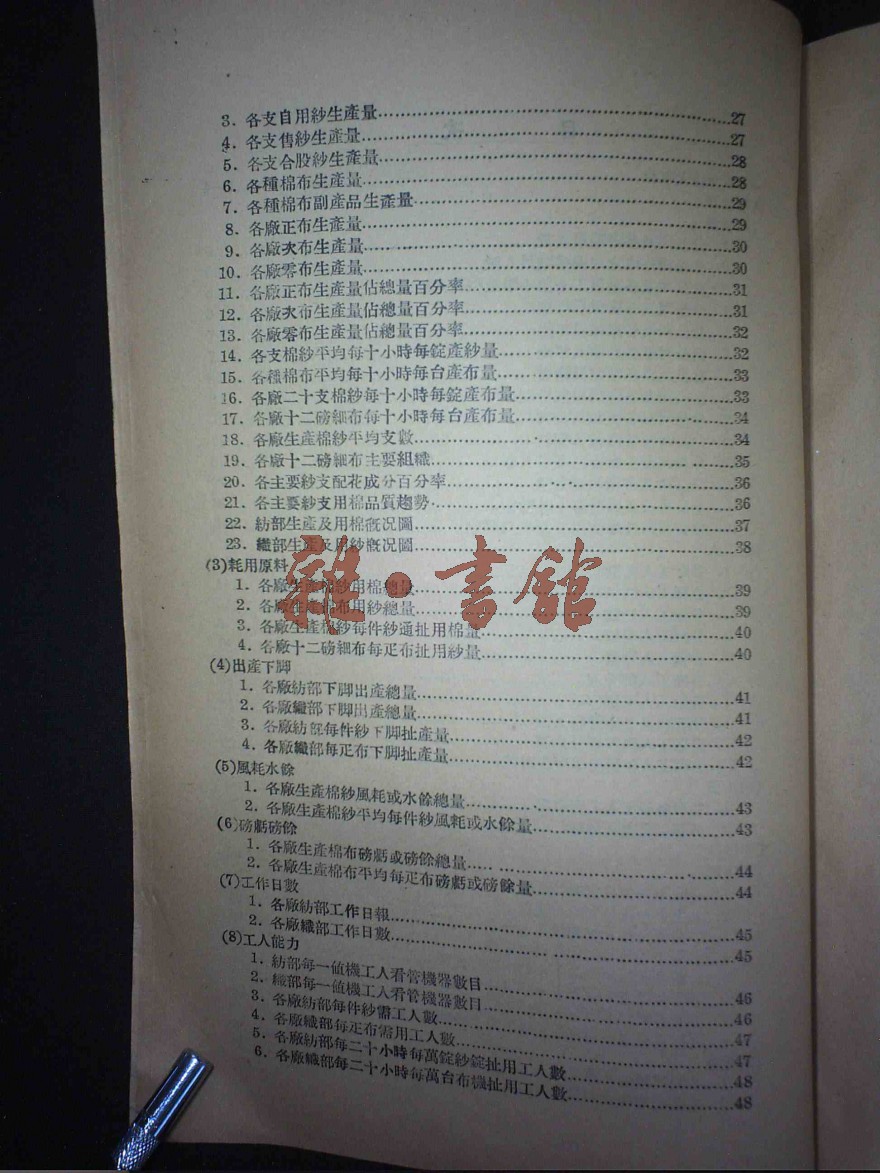 3. 各支自用紗生產量……27
4. 各支售紗生產量……27
5. 各支合股紗生產量……28
6. 各種棉布生產量……28
7. 各種棉布副產品生產量……29
8. 各廠正布生產量……29
9. 各廠次布生產量……30
10. 各廠零布生產量……30
11. 各廠正布生產量佔總量百分率……31
12. 各廠次布生產量佔總量百分率……31
13. 各廠零布生產量佔總量百分率……32
14. 各支棉紗平均每十小時每錠產紗量……32
15. 各種棉布平均每十小時每台產布量……33
16. 各廠二十支棉紗每十小時每錠產布量……33
17. 各廠十二磅細布每十小時每台產布量……34
18. 各廠生產棉紗平均支數……34
19. 各廠十二磅細布主要組織……35
20. 各主要紗支配花成分百分率……36
21. 各主要紗支用棉品質趨勢……36
22. 紡部生產及用棉概况圖……37
23. 織部生產及用紗概况圖……38
(3)耗用原料
1. 各廠生產棉紗用棉總量……39
2. 各廠生產棉布用紗總量……39
3. 各廠生產棉紗每件紗通扯用棉量……40
4. 各廠十二磅細布每疋布扯用紗量……40
(4)出產下脚
1. 各廠紡部下脚出產總量……41
2. 各廠織部下脚出產總量……41
3. 各廠紡部每件紗下脚扯產量……42
4. 各廠織部每疋布下脚扯產量……42
(5)風耗水餘
1. 各廠生產棉紗風耗或水餘總量……43
2. 各廠生產棉紗平均每件紗風耗或水餘量……43
(6)磅虧磅餘
1. 各廠生產棉布磅虧或磅餘總量……44
2. 各廠生產棉布平均每疋布磅虧或磅餘量……44
(7)工作日數
1. 各廠紡部工作日報……45
2. 各廠織部工作日數……45
(8)工人能力
1. 紡部每一值機工人看管機器數目……46
2. 織部每一值機工人看管機器數目……46
3. 各廠紡部每件紗需工人數……47
4. 各廠織部每疋布需用工人數……47
5. 各廠紡部每二十小時每萬錠紗錠扯用工人數……48
6. 各廠織部每二十小時每萬台布機扯用工人數……48
雜·書館